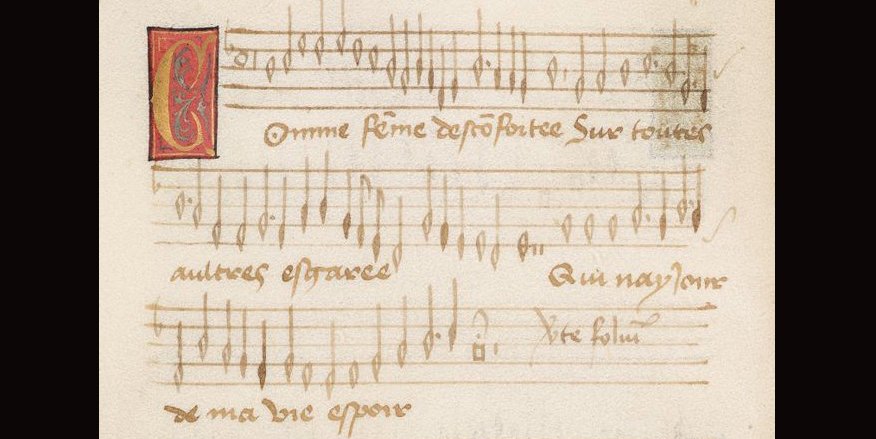 Comme fēme descōfortee Sur toutes
aultres esgaree Qui nay Jour
de ma vie espoir